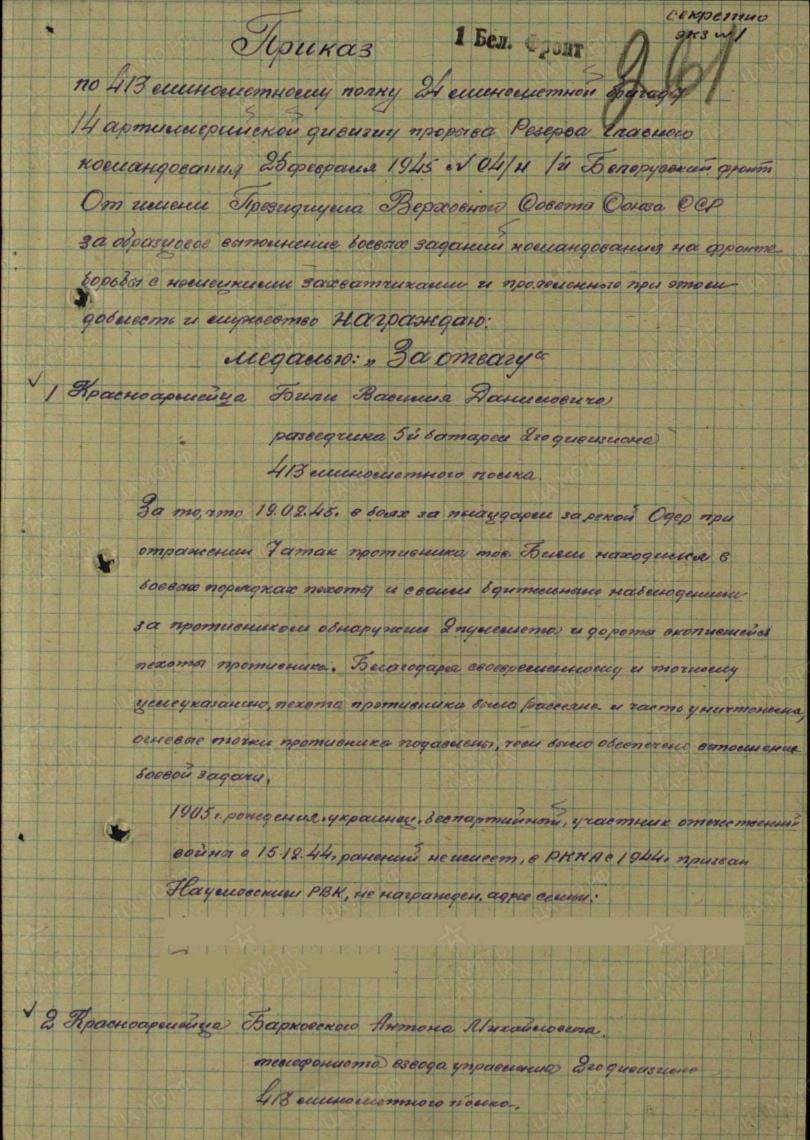 секретно
экз №1
Приказ
1 Бел. Фронт
по 413 минометному полку 24 минометной бригады
14 артиллерийской дивизии прорыва Резерва Главного
командования 25 февраля 1945 №04/н 1й Белорусский фронт
От имени Президиума Верховного Совета Союза ССР
за образцовое выполнение боевых заданий командования на фронте
борьбы с немецкими захватчиками и проявленные при этом
доблесть и мужество награждаю:
медалью: „За отвагу“
1 Красноармейца Били Василия Даниловича
разведчика 5й батареи 2го дивизиона
413 минометного полка.
За то, что 19.02.45. в боях за плацдарм за рекой Одер при
отражении 7 атак противника тов. Били находился в
боевых порядках пехоты и своим бдительным наблюдением
за противником обнаружил 2 пулемета и до роты скопившейся
пехоты противника. Благодаря своевременному и точному
целеуказанию, пехота противника была рассеяна и часть уничтожена,
огневые точки противника подавлены, чем было обеспечено выполнение
боевой задачи.
1905 г. рождения, украинец, беспартийный, участник отечественной
войны с 15.12.44, ранений не имеет, в РККА с 1944. призван
РВК, не награжден, адрес семьи:
2 Красноармейца Барковского Антона Михайловича.
телефониста взвода управления 2го дивизиона
413 минометного полка.